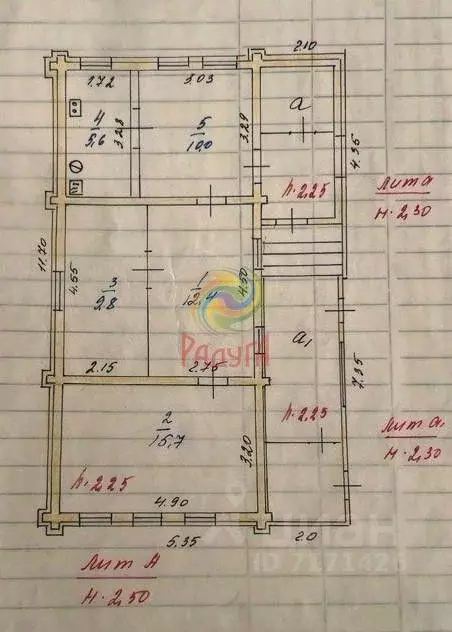 2.10
1.72
3.03
а
4
5,6
3.28
5
10,0
3.29
4.35
h.2,25
Лит а
Н.2,30
11.70
4.55
3
9,8
1
12,4
4.50
Радуга
а₁
2.15
2.75
7.35
h.2,25
2
15,7
3.20
Лит а₁
Н.2,30
h.2,25
4.90
5.35
2.0
Циан
ID 7171425
Лит А
Н.2,50